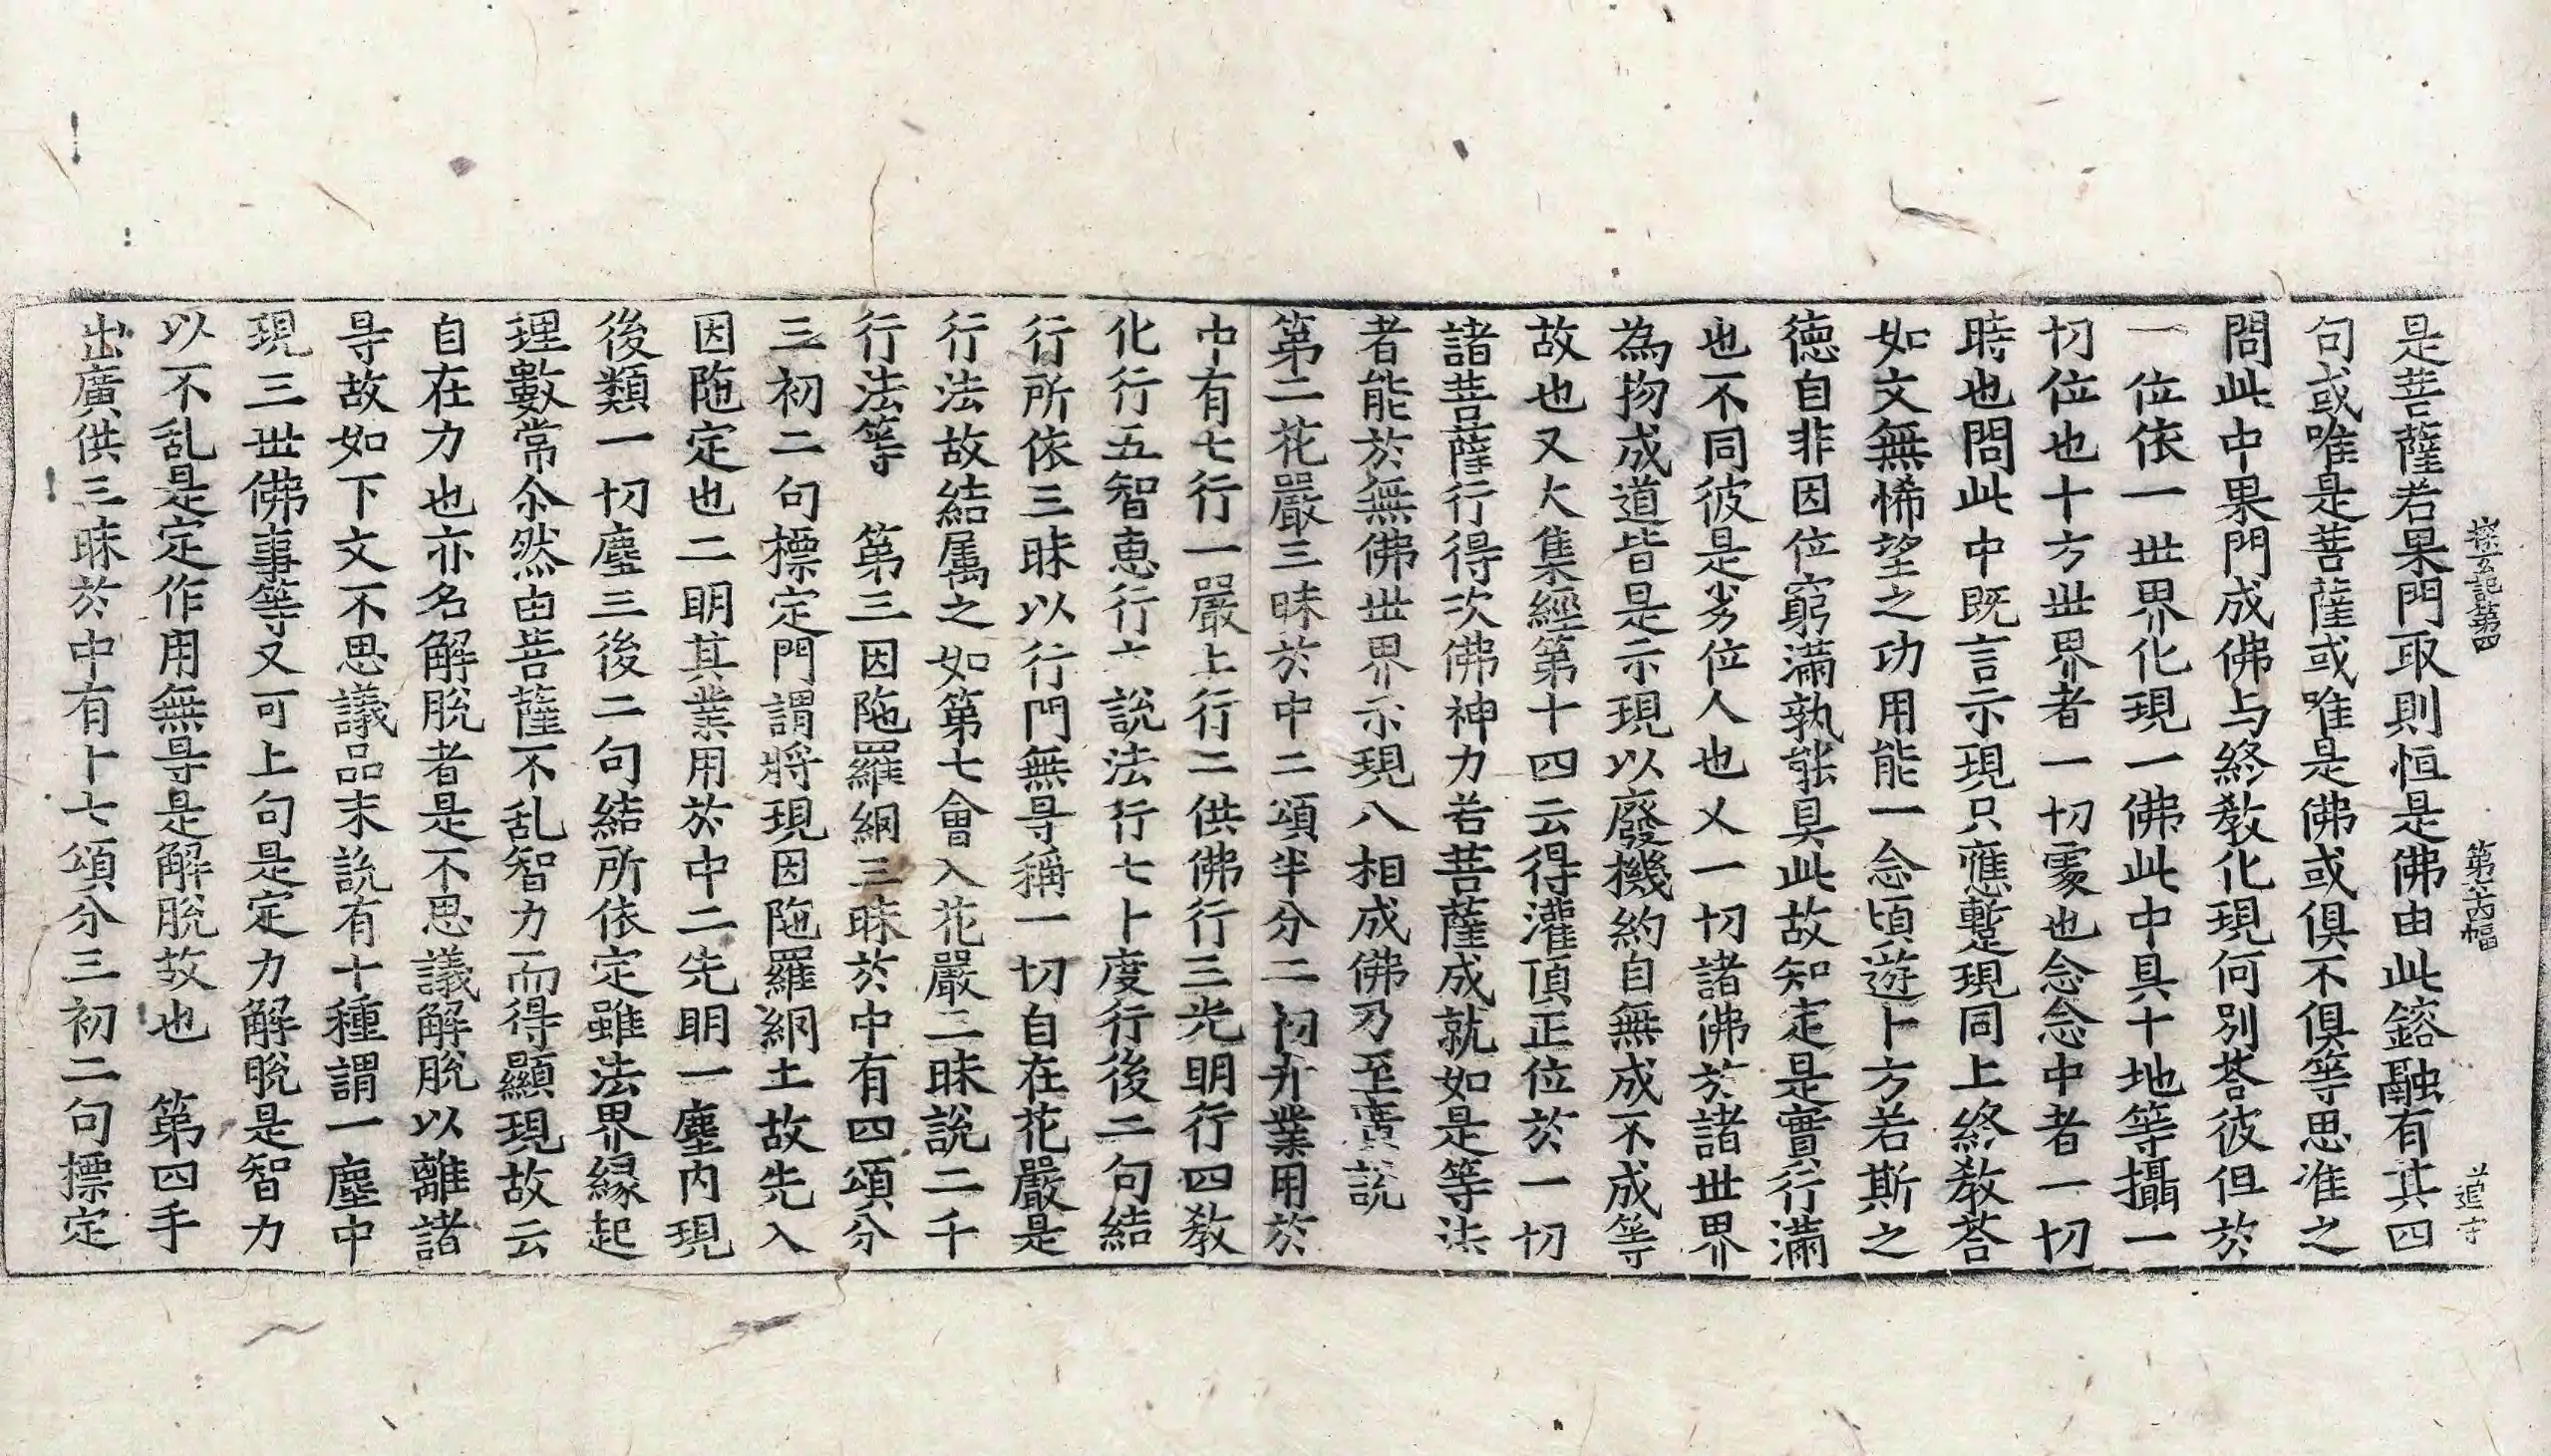 探玄記第四 第六丙幅 道守
是菩薩若果門取則恒是佛由此鎔融有其四
句或唯是菩薩或唯是佛或俱不俱等思准之
問此中果門成佛与終教化現何別荅彼但於
一位依一世界化現一佛此中具十地等攝一
切位也十方世界者一切處也念念中者一切
時也問此中既言示現只應暫現同上終教荅
如文無悕望之功用能一念頃遊十方若斯之
德自非因位窮滿孰能具此故知定是實行滿
也不同彼是劣位人也又一切諸佛於諸世界
為物成道皆是示現以廢機約自無成不成等
故也又大集經第十四云得灌頂正位於一切
諸菩薩行得次佛神力若菩薩成就如是等法
者能於無佛世界示現八相成佛乃至廣說
第二花嚴三昧於中二頌半分二初弁業用於
中有七行一嚴上行二供佛行三光明行四教
化行五智恵行六說法行七十度行後二句結
行所依三昧以行門無㝵稱一切自在花嚴是
行法故結属之如第七會入花嚴三昧說二千
行法等　第三因陁羅網三昧於中有四頌分
三初二句標定門謂將現因陁羅網土故先入
因陁定也二明其業用於中二先明一塵内現
後類一切塵三後二句結所依定雖法界縁起
理數常尒然由菩薩不乱智力而得顯現故云
自在力也亦名解脫者是不思議解脫以離諸
㝵故如下文不思議品末說有十種謂一塵中
現三世佛事等又可上句是定力解脫是智力
以不乱是定作用無㝵是解脫故也　第四手
出廣供三昧於中有十七頌分三初二句摽定